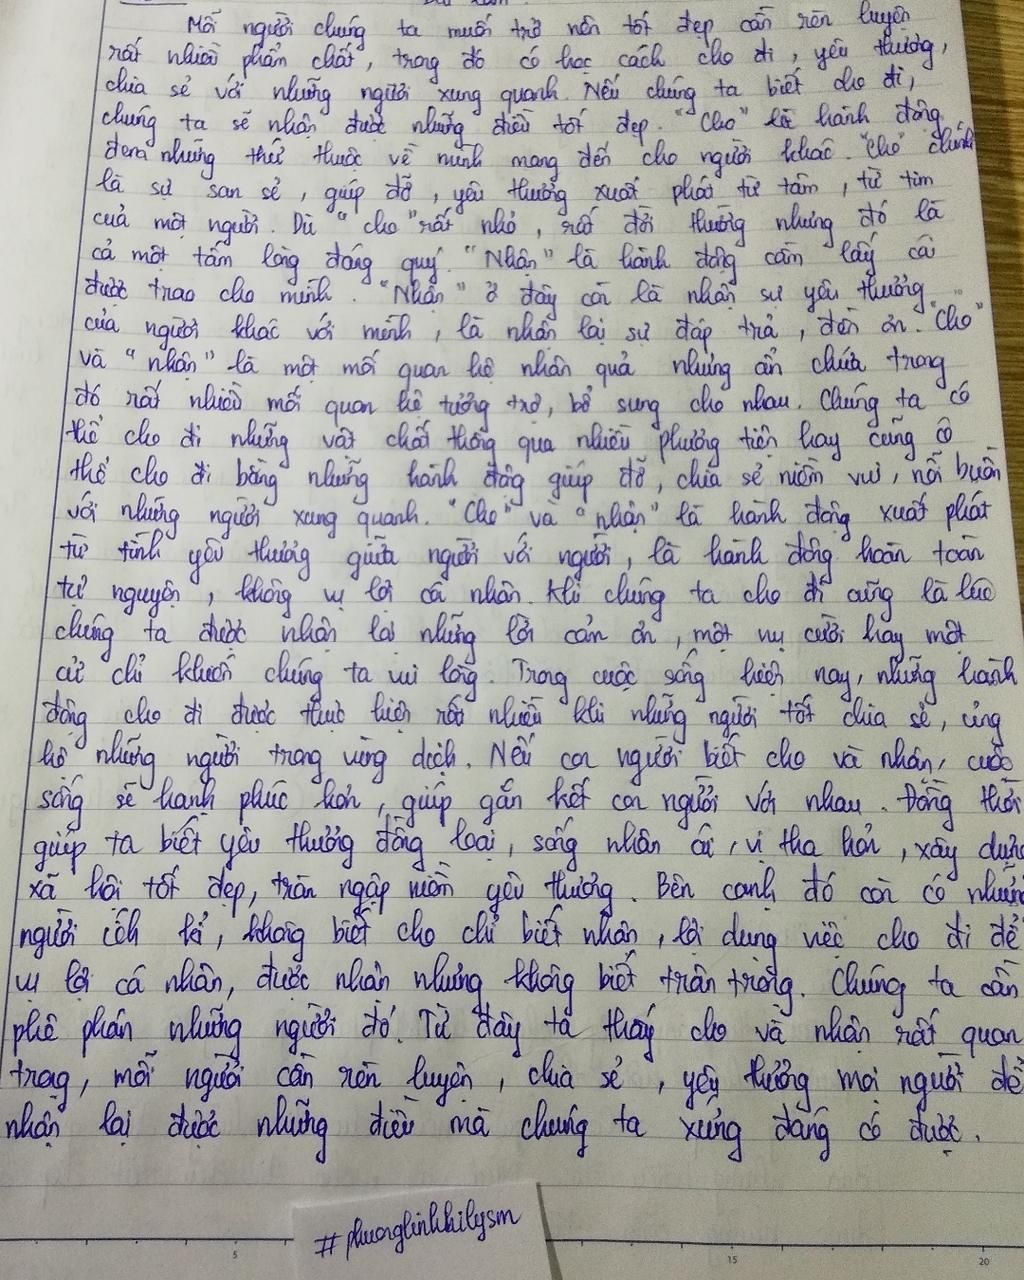 Mỗi người chúng ta muốn trở nên tốt đẹp cần rèn luyện
rất nhiều phẩm chất, trong đó có học cách cho đi, yêu thương,
chia sẻ với những người xung quanh. Nếu chúng ta biết cho đi,
chúng ta sẽ nhận được những điều tốt đẹp. "Cho" là hành động
đem những thứ thuộc về mình mang đến cho người khác. "Cho" chính
là sự san sẻ, giúp đỡ, yêu thương xuất phát từ tâm, từ tim
của một người. Dù "cho" rất nhỏ, rất đời thường nhưng đó là
cả một tấm lòng đáng quý. "Nhận" là hành động cầm lấy cái
được trao cho mình. "Nhận" ở đây còn là nhận sự yêu thương
của người khác với mình, là nhận lại sự đáp trả, đền ơn. "Cho"
và "nhận" là một mối quan hệ nhân quả nhưng ẩn chứa trong
đó rất nhiều mối quan hệ tương trợ, bổ sung cho nhau. Chúng ta có
thể cho đi những vật chất thông qua nhiều phương tiện hay cũng có
thể cho đi bằng những hành động giúp đỡ, chia sẻ niềm vui, nỗi buồn
với những người xung quanh. "Cho" và "nhận" là hành động xuất phát
từ tình yêu thương giữa người với người, là hành động hoàn toàn
tự nguyện, không vụ lợi cá nhân. Khi chúng ta cho đi cũng là lúc
chúng ta được nhận lại những lời cảm ơn, một nụ cười hay một
cử chỉ khiến chúng ta vui lòng. Trong cuộc sống hiện nay, những hành
động cho đi được thực hiện rất nhiều khi những người tốt chia sẻ, ủng
hộ những người trong vùng dịch. Nếu con người biết cho và nhận, cuộc
sống sẽ hạnh phúc hơn, giúp gắn kết con người với nhau. Đồng thời
giúp ta biết yêu thương đồng loại, sống nhân ái, vị tha hơn, xây dựng
xã hội tốt đẹp, tràn ngập niềm yêu thương. Bên cạnh đó còn có những
người ích kỉ, không biết cho chỉ biết nhận, lợi dụng việc cho đi để
vụ lợi cá nhân, được nhận nhưng không biết trân trọng. Chúng ta cần
phê phán những người đó. Từ đây ta thấy cho và nhận rất quan
trọng, mỗi người cần rèn luyện, chia sẻ, yêu thương mọi người để
nhận lại được những điều mà chúng ta xứng đáng có được.
#phuonglinhhilysm
5 15 20